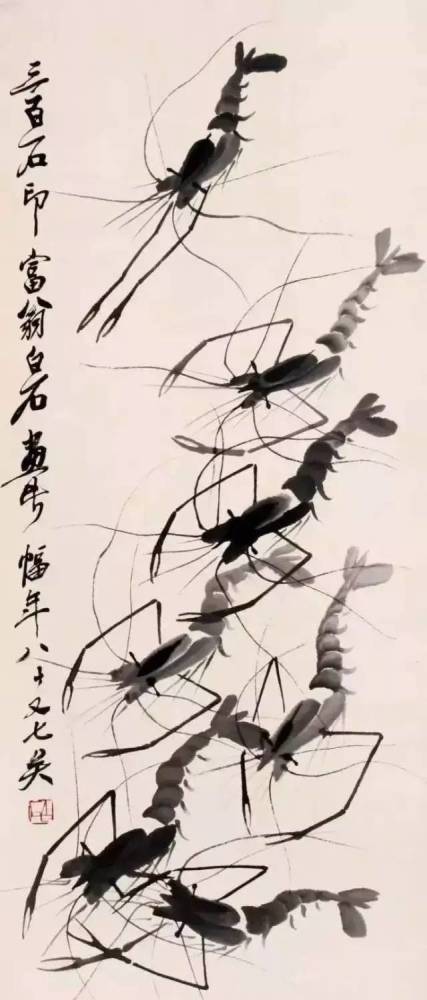 三百石印富翁白石画第　幅年八十又七矣